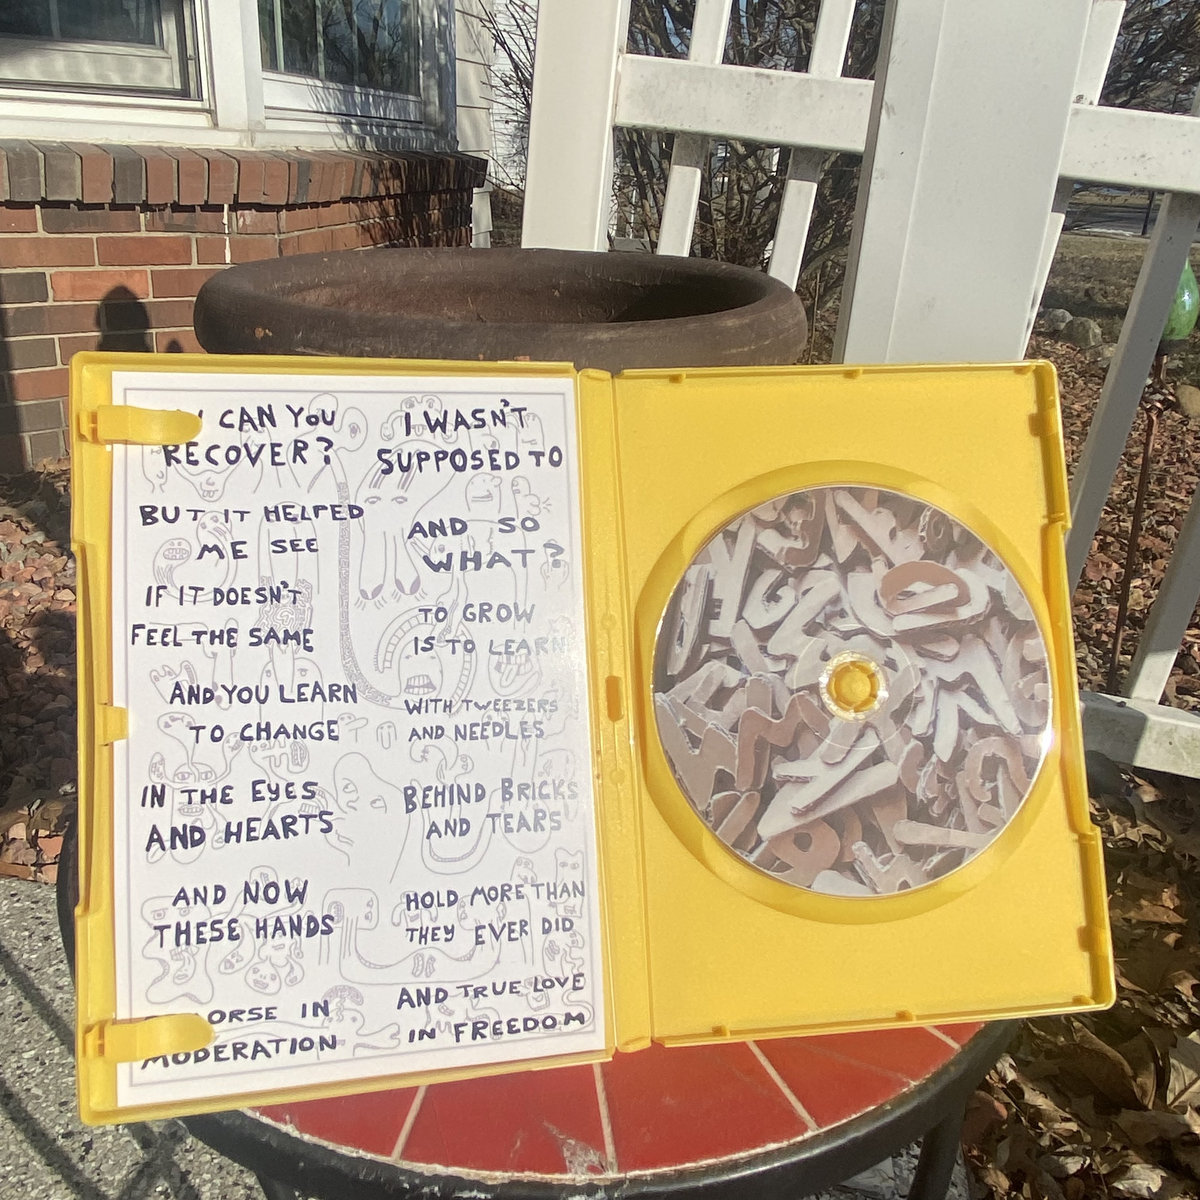 CAN YOU
RECOVER?
BUT IT HELPED
ME SEE
IF IT DOESN'T
FEEL THE SAME
AND YOU LEARN
TO CHANGE
IN THE EYES
AND HEARTS
AND NOW
THESE HANDS
IN
MODERATION
I WASN'T
SUPPOSED TO
AND SO
WHAT?
TO GROW
IS TO LEARN
WITH TWEEZERS
AND NEEDLES
BEHIND BRICKS
AND TEARS
HOLD MORE THAN
THEY EVER DID
AND TRUE LOVE
IN FREEDOM